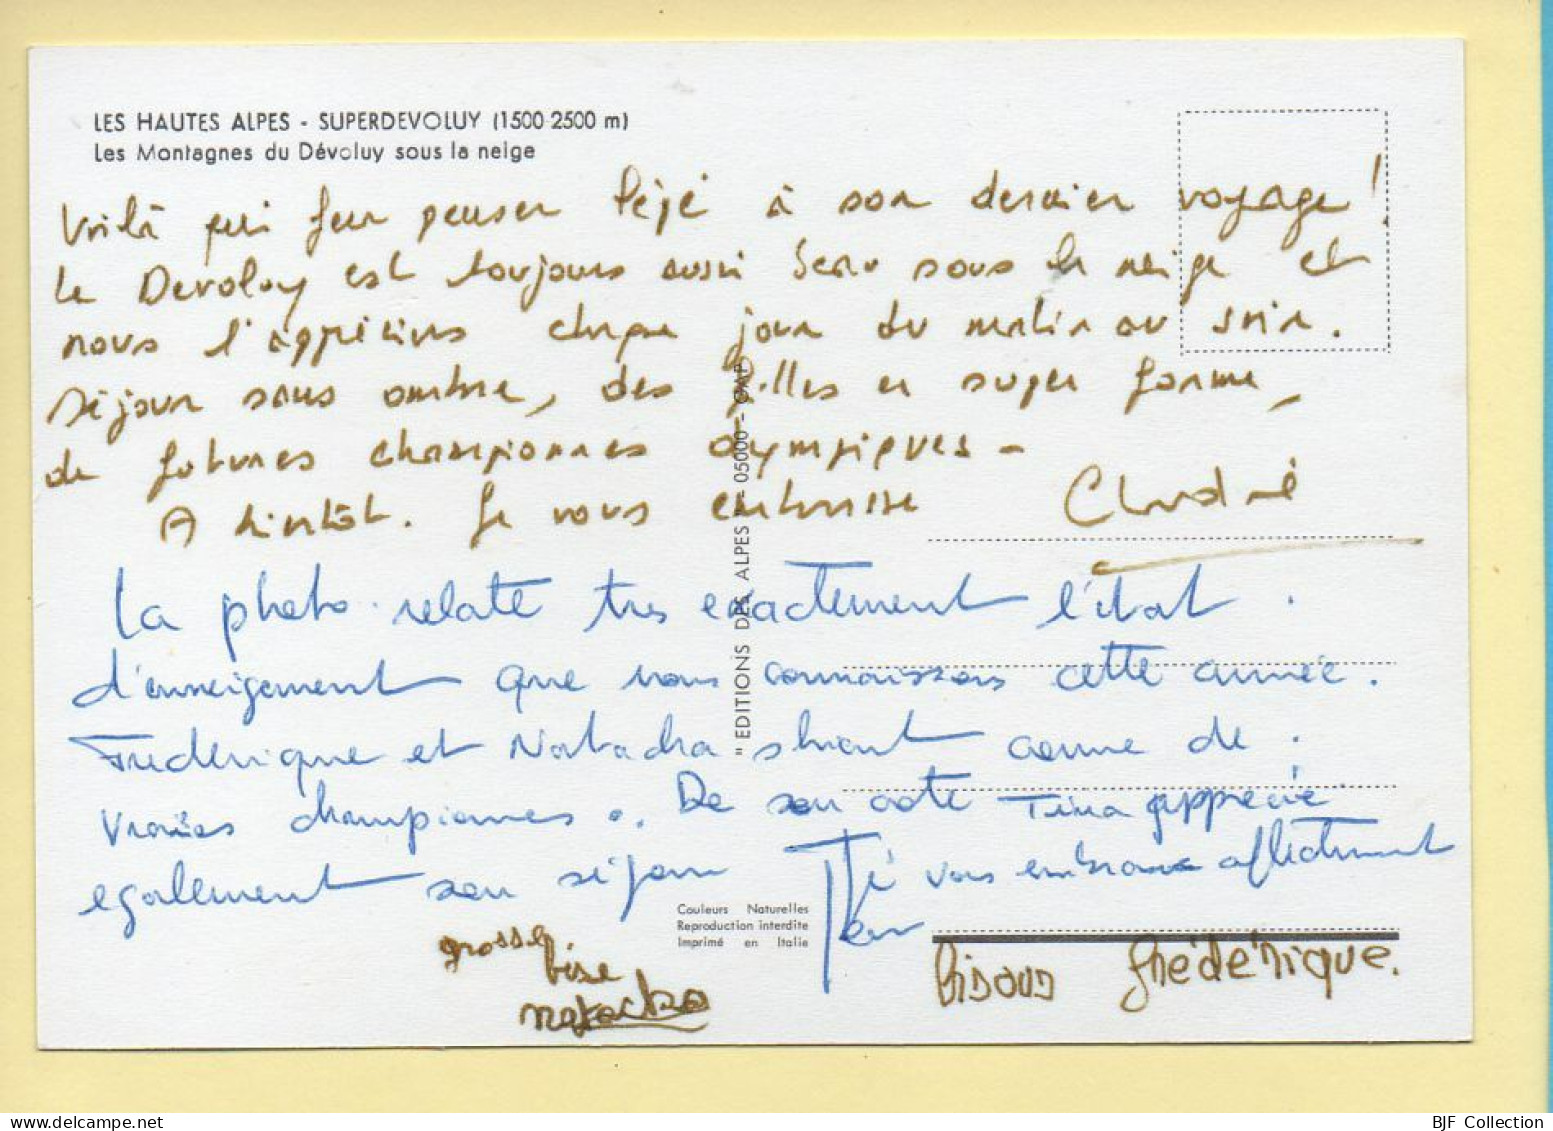 LES HAUTES ALPES - SUPERDEVOLUY (1500-2500 m)
Les Montagnes du Dévoluy sous la neige
Voilà qui fera penser Pépé à son dernier voyage !
Le Devoluy est toujours aussi beau sous la neige et
nous l'apprécions chaque jour du matin au soir.
Séjour sans ombre, des filles en super forme,
de futures championnes olympiques -
A bientôt. Je vous embrasse
"EDITIONS DES ALPES" - 05000 - GAP
La photo relate tres exactement l'état
d'enneigement que nous connaissons cette année.
Frederique et Natacha skient comme de
vraies championnes. De son coté Tina apprécie
egalement son séjour
vous embrasse affectueusement
Couleurs Naturelles
Reproduction interdite
Imprimé en Italie
grosse
bise
Natacha
bisous frédérique.
BJF Collection